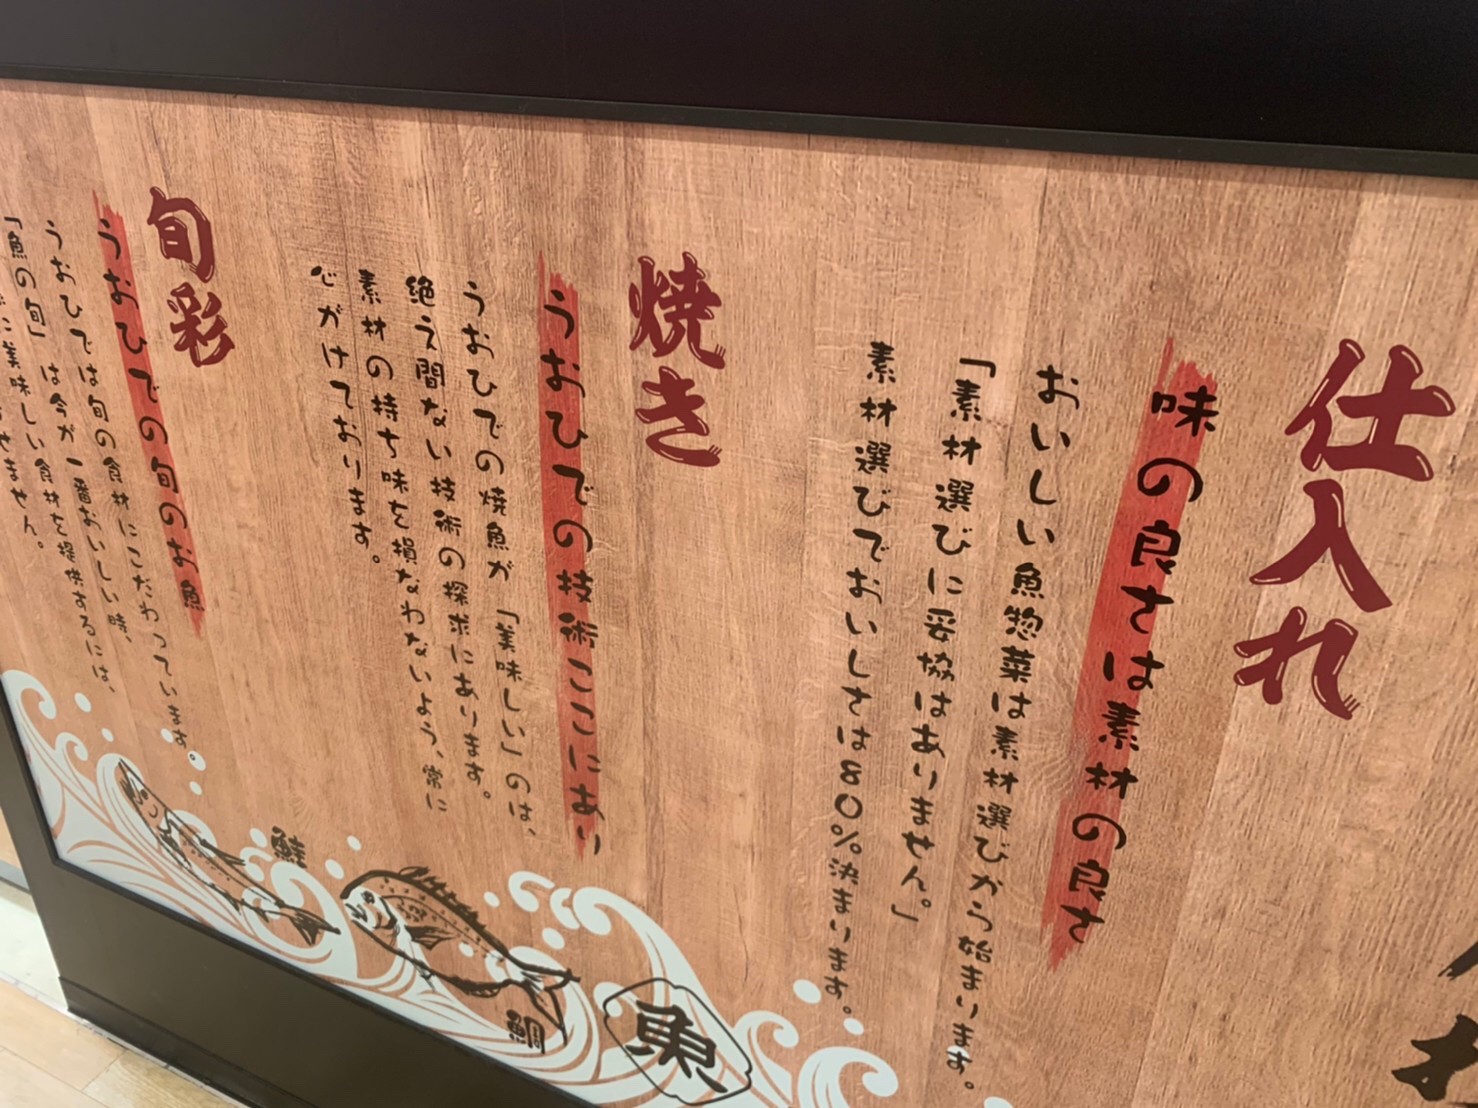 仕入れ
味の良さは素材の良さ
おいしい魚惣菜は素材選びから始まります。
「素材選びに妥協はありません。」
素材選びでおいしさは80%決まります。
焼き
うおひでの技術ここにあり
うおひでの焼魚が「美味しい」のは、
絶え間ない技術の探求にあります。
素材の持ち味を損なわないよう、常に
心がけております。
旬彩
うおひでの旬のお魚
うおひでは旬の食材にこだわっています。
「魚の旬」は今が一番おいしい時、
に美味しい食材を提供するには、
せません。
鮭
鯛
魚